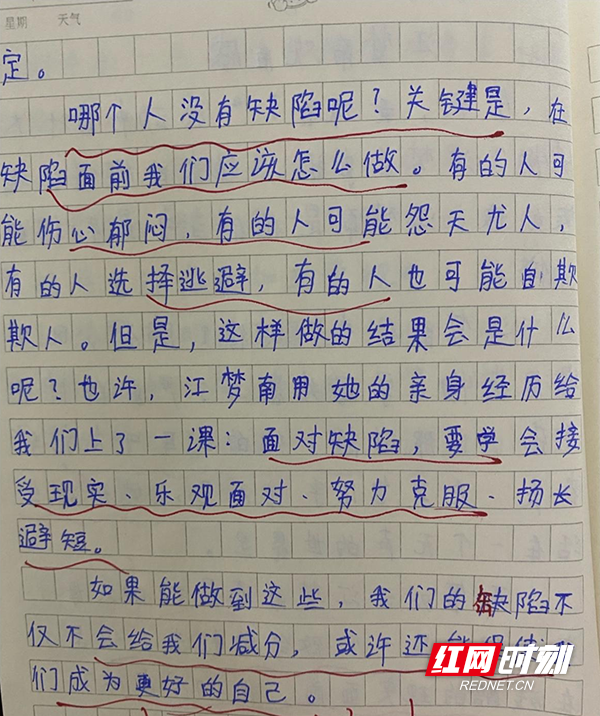 星期 天气
定。
哪个人没有缺陷呢？关键是，在
缺陷面前我们应该怎么做。有的人可
能伤心郁闷，有的人可能怨天尤人，
有的人选择逃避，有的人也可能自欺
欺人。但是，这样做的结果会是什么
呢？也许，江梦南用她的亲身经历给
我们上了一课：面对缺陷，要学会接
受现实、乐观面对、努力克服、扬长
避短。
如果能做到这些，我们的缺陷不
仅不会给我们减分，或许还能
们成为更好的自己。
红网时刻
REDNET.CN